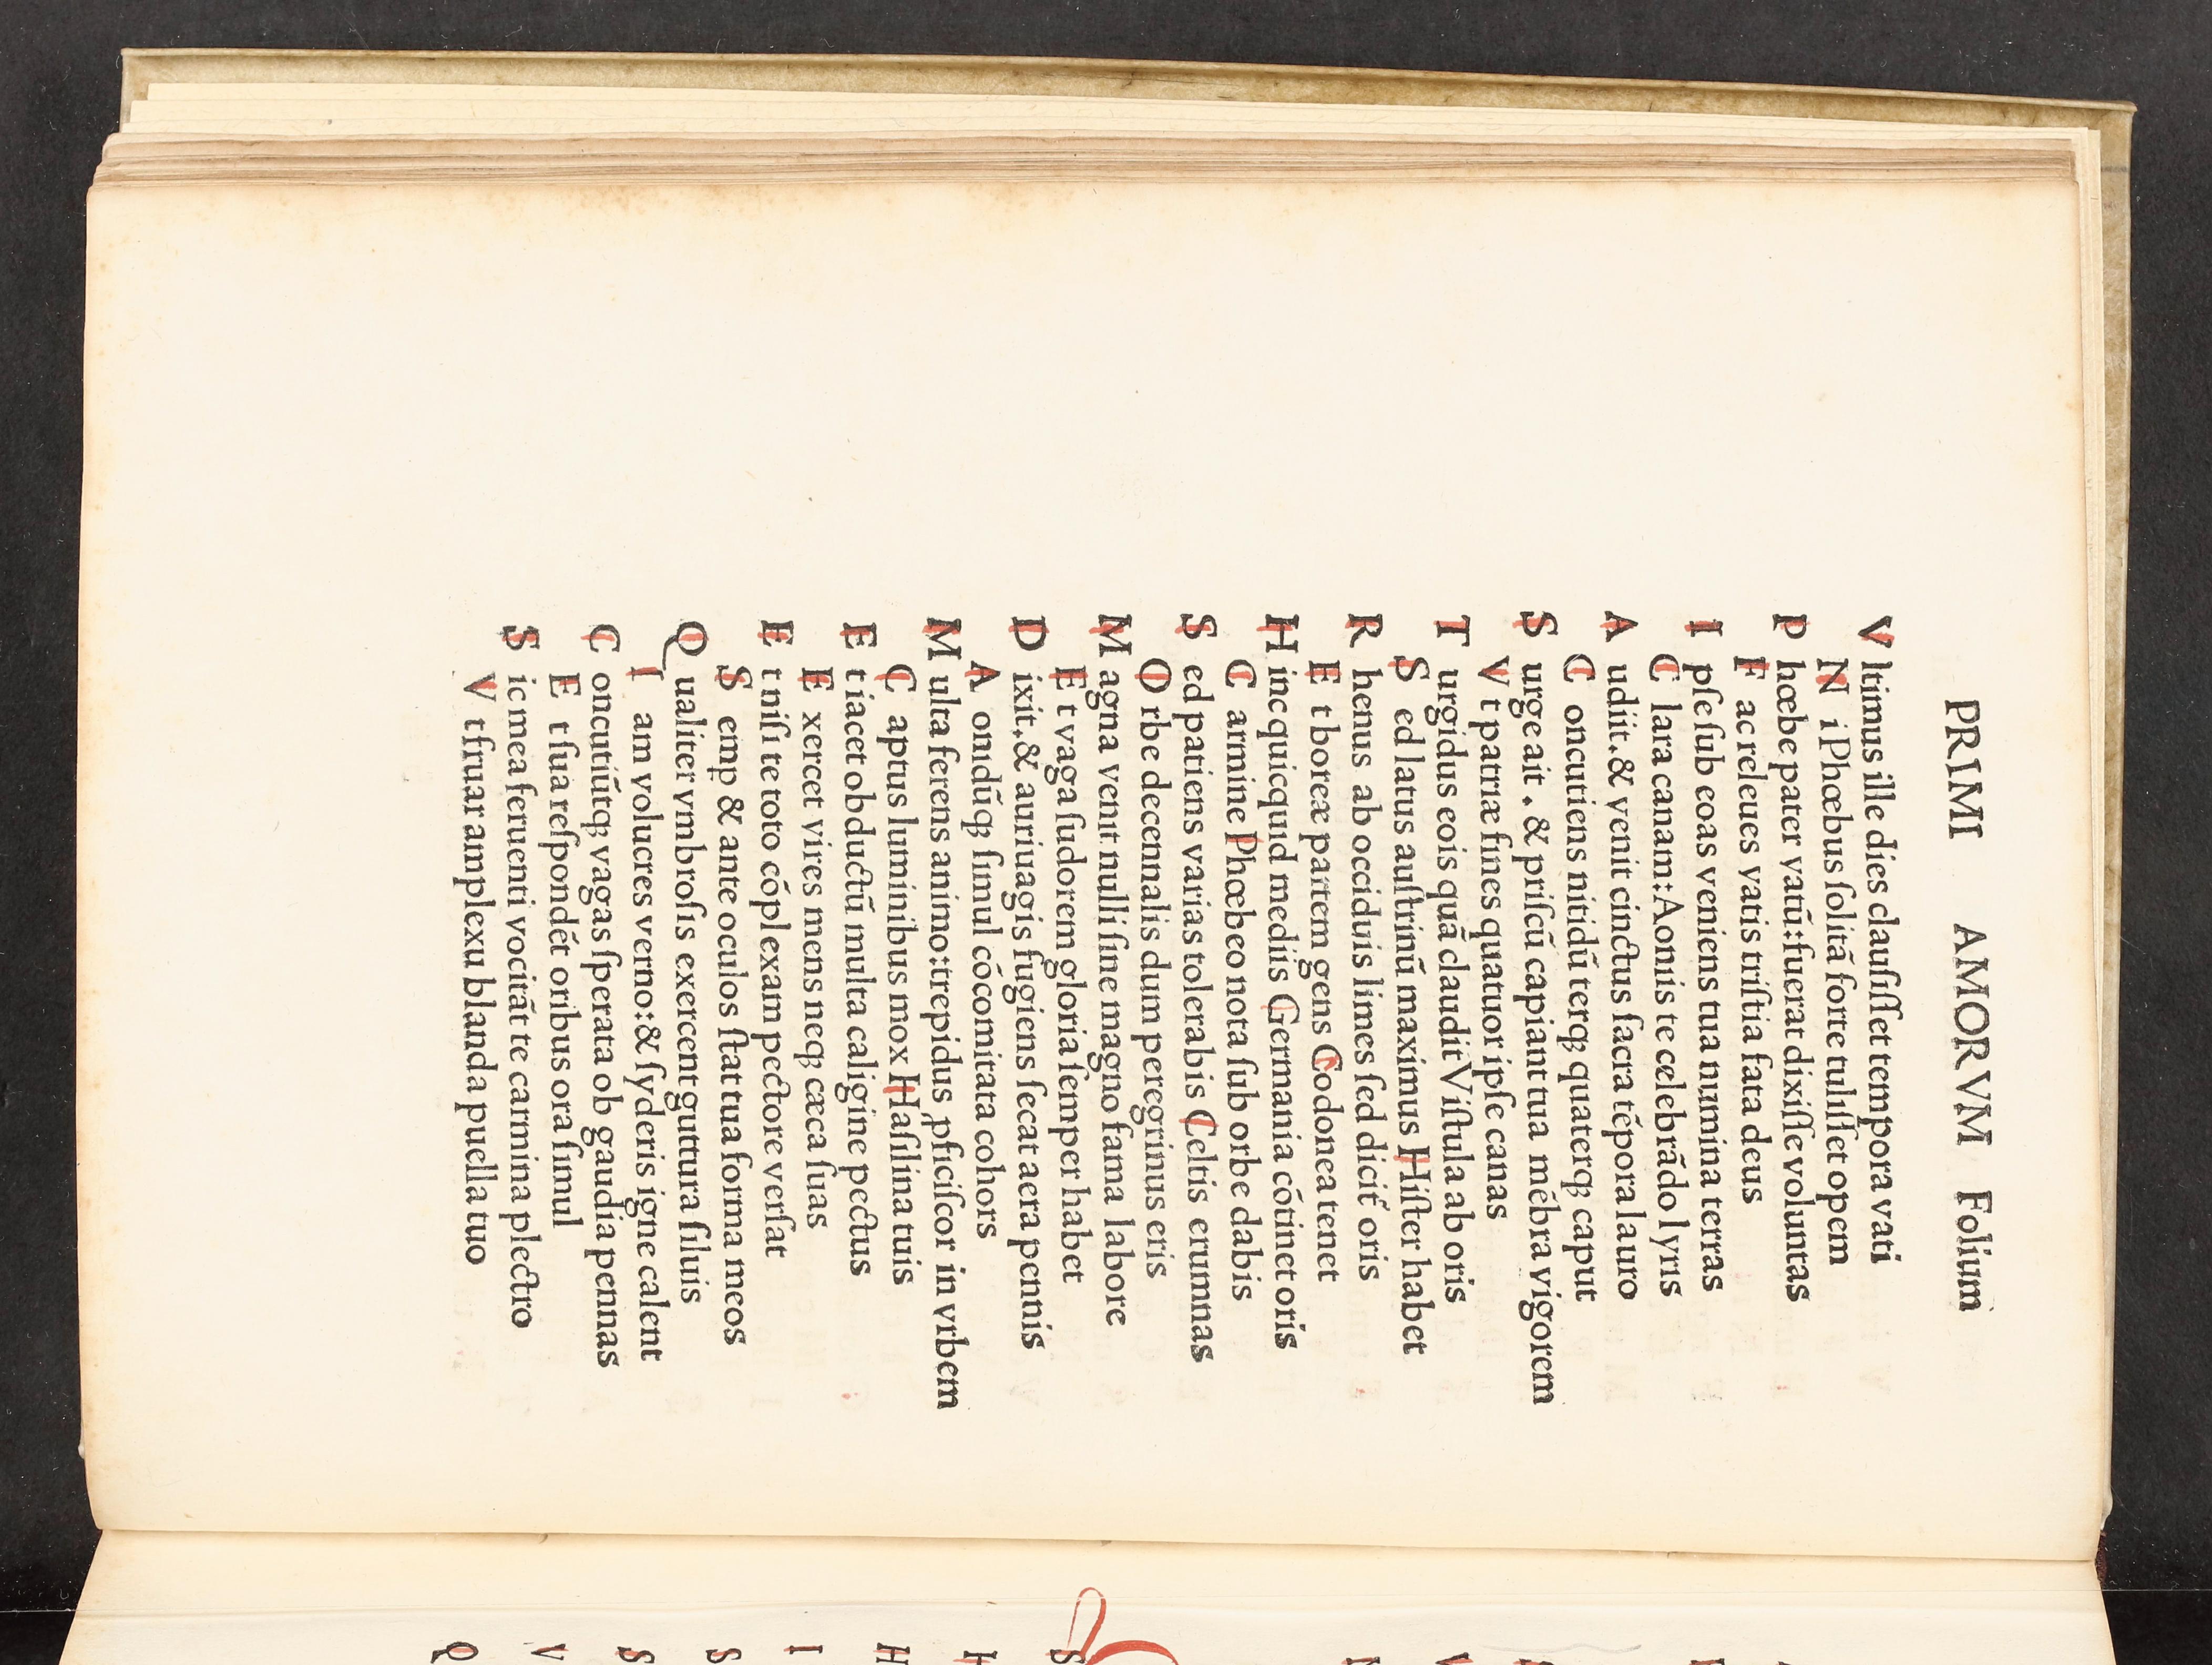 PRIMI AMORVM Folium
V ltimus ille dies clauſiſſet tempora vati
N i Phœbus ſolitã forte tuliſſet opem
P hœbe pater vatũ: fuerat dixiſſe voluntas
F ac releues vatis triſtia fata deus
I pſe ſub eoas veniens tua numina terras
C lara canam: Aoniis te celebrãdo lyris
A udiit. & venit cinctus ſacra tẽpora lauro
C oncutiens nitidũ terq; quaterq; caput
S urge ait . & priſcũ capiant tua mẽbra vigorem
V t patriæ fines quatuor ipſe canas
T urgidus eois quã claudit Viſtula ab oris
S ed latus auſtrinũ maximus Hiſter habet
R henus ab occiduis limes ſed dicit̃ oris
E t boreæ partem gens Codonea tenet
H inc quicquid mediis Germania cõtinet oris
C armine Phœbeo nota ſub orbe dabis
S ed patiens varias tolerabis Celtis erumnas
O rbe decennalis dum peregrinus eris
M agna venit nulli ſine magno fama labore
E t vaga ſudorem gloria ſemper habet
D ixit. & auriuagis fugiens ſecat aera pennis
A onidũq; ſimul cõcomitata cohors
M ulta ferens animo: trepidus ꝓficiſcor in vrbem
C aptus luminibus mox Haſilina tuis
E t iacet obductũ multa caligine pectus
E xercet vires mens neq; cæca ſuas
E t niſi te toto cõplexam pectore verſat
S emꝑ & ante oculos ſtat tua forma meos
Q ualiter vmbroſis exercent guttura ſiluis
I am volucres verno: & ſyderis igne calent
C oncutiũtq; vagas ſperata ob gaudia pennas
E t ſua reſpondẽt oribus ora ſimul
S ic mea feruenti vocitãt te carmina plectro
V t fruar amplexu blanda puella tuo